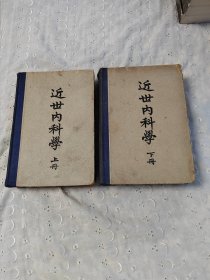 近世内科學
上冊
近世内科學
下冊